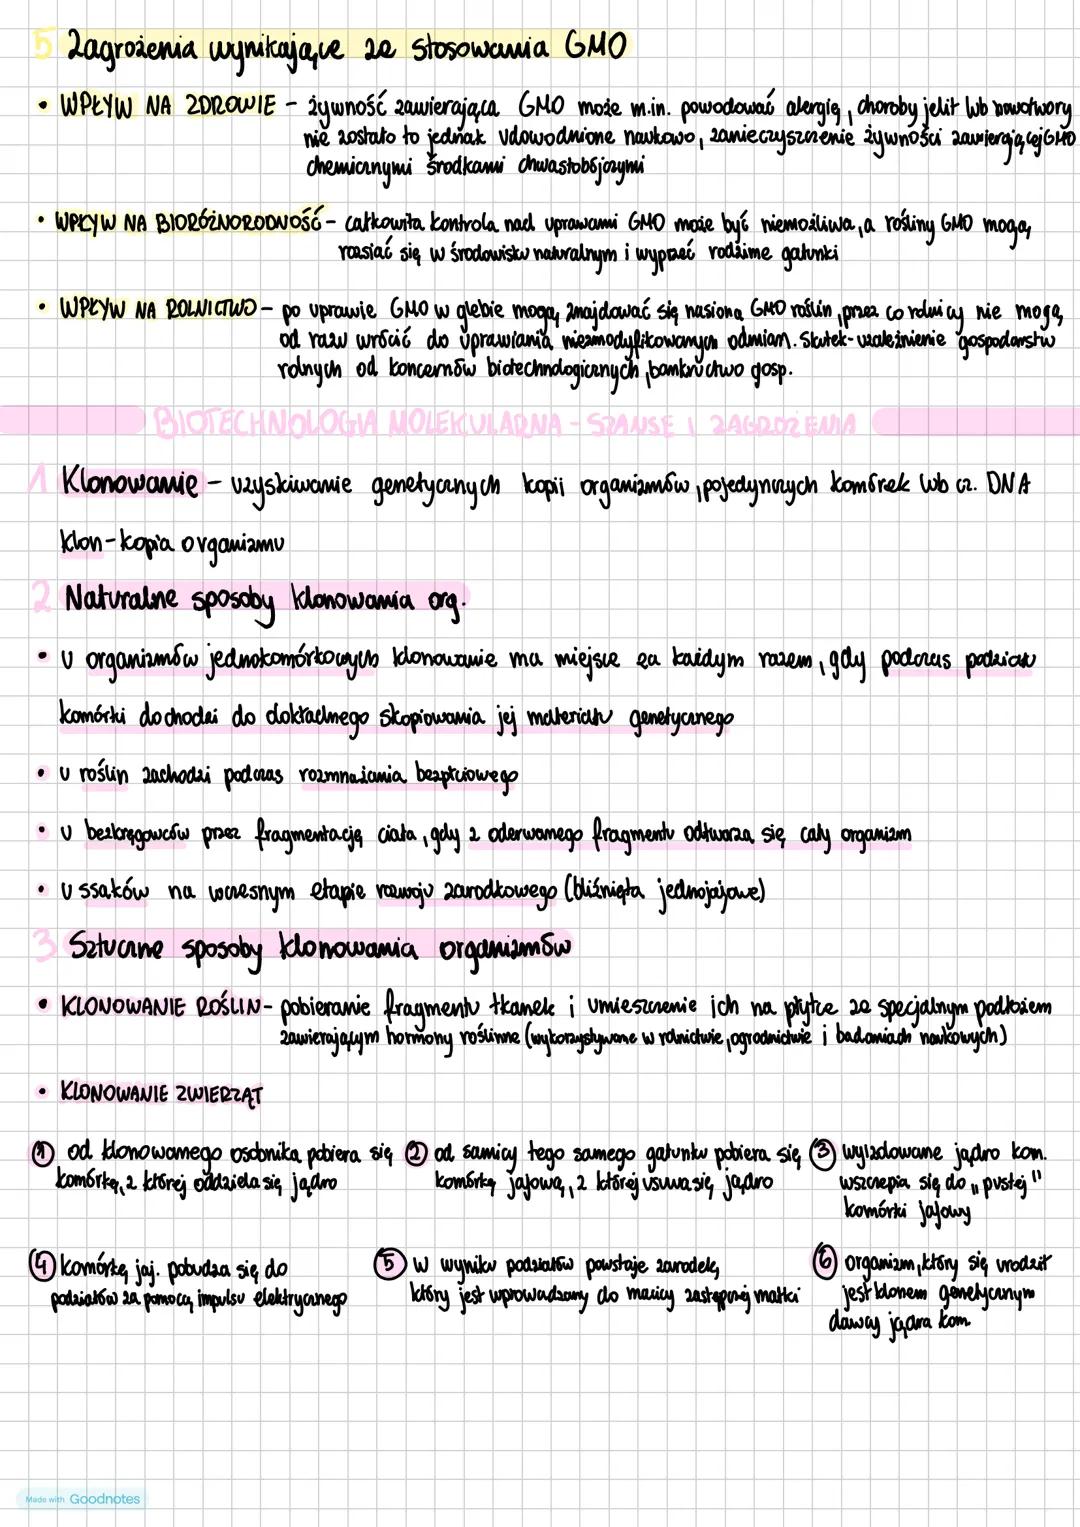 5 Zagrożenia wynikające ze stosowania GMO
• WPŁYW NA ZDROWIE - żywność zawierająca GMO może m.in. powodować alergię, choroby jelit lub nowotwory
nie zostało to jednak udowodnione naukowo, zanieczyszczenie żywności zawierającej GMO
chemicznymi środkami chwastobójczymi
• WPŁYW NA BIORÓŻNORODNOŚĆ - całkowita kontrola nad uprawami GMO może być niemożliwa, a rośliny GMO mogą
rozsiać się w środowisku naturalnym i wyprzeć rodzime gatunki
• WPŁYW NA ROLNICTWO - po uprawie GMO w glebie mogą znajdować się nasiona GMO roślin, przez co rolnicy nie mogą
od razu wrócić do uprawiania niezmodyfikowanych odmian. Skutek - uzależnienie gospodarstw
rolnych od koncernów biotechnologicznych, bankructwo gosp.
BIOTECHNOLOGIA MOLEKULARNA - SZANSE I ZAGROŻENIA
1 Klonowanie - uzyskiwanie genetycznych kopii organizmów, pojedynczych komórek lub cz. DNA
klon - kopia organizmu
2 Naturalne sposoby klonowania org.
• u organizmów jednokomórkowych klonowanie ma miejsce za każdym razem, gdy podczas podziału
komórki dochodzi do dokładnego skopiowania jej materiału genetycznego
• u roślin zachodzi podczas rozmnażania bezpłciowego
• u bezkręgowców przez fragmentację ciała, gdy z oderwanego fragmentu odtwarza się cały organizm
• u ssaków na wczesnym etapie rozwoju zarodkowego (bliźnięta jednojajowe)
3 Sztuczne sposoby klonowania organizmów
• KLONOWANIE ROŚLIN - pobieranie fragmentu tkanek i umieszczenie ich na płytce ze specjalnym podłożem
zawierającym hormony roślinne (wykorzystywane w rolnictwie, ogrodnictwie i badaniach naukowych)
• KLONOWANIE ZWIERZĄT
① od klonowanego osobnika pobiera się
komórkę, z której oddziela się jądro
② od samicy tego samego gatunku pobiera się
komórkę jajową, z której usuwa się jądro
③ wyizdowane jądro kom.
wszczepia się do „pustej"
komórki jajowy
④ komórkę jaj. pobudza się do
podziałów za pomocą impulsu elektrycznego
⑤ W wyniku podziałów powstaje zarodek,
który jest wprowadzany do macicy zastępczej matki
⑥ organizm, który się urodził
jest klonem genetycznym
dawcy jądra kom.
Made with Goodnotes